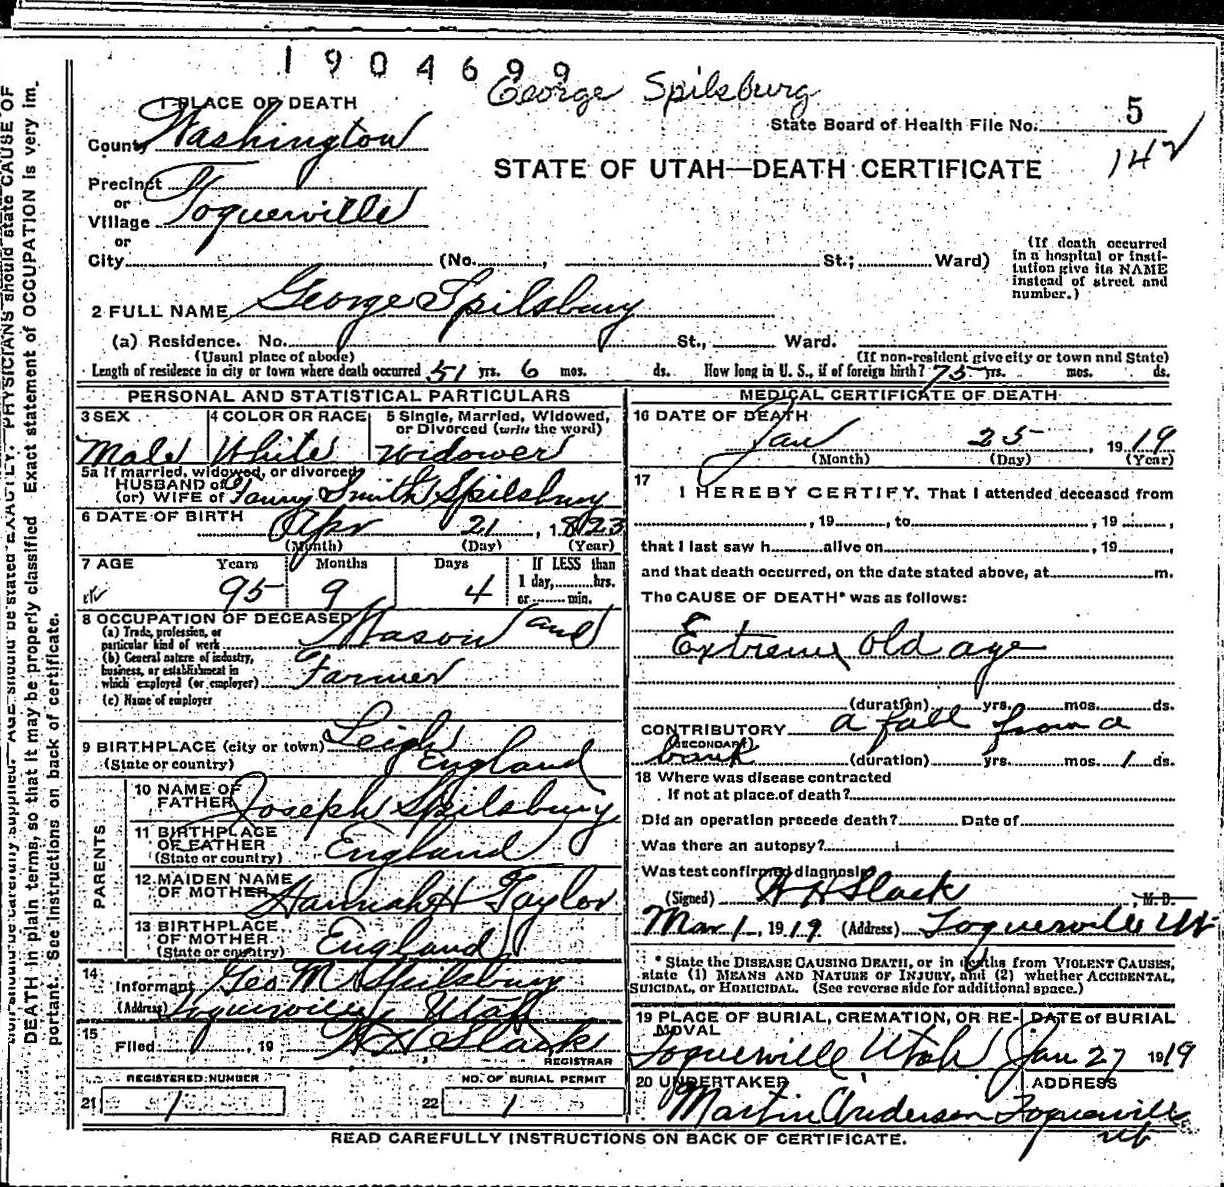 1904699
George Spilsburg
1 PLACE OF DEATH
County Washington
State Board of Health File No. 5
142
STATE OF UTAH—DEATH CERTIFICATE
Precinct
or
Village Toquerville
or
City (No. , St.; Ward)
(If death occurred in a hospital or institution give its NAME instead of street and number.)
2 FULL NAME George Spilsbury
(a) Residence. No. St., Ward.
(Usual place of abode) (If non-resident give city or town and State)
Length of residence in city or town where death occurred 51 yrs. 6 mos. ds. How long in U. S., if of foreign birth? 75 yrs. mos. ds.
PERSONAL AND STATISTICAL PARTICULARS
3 SEX
Male
4 COLOR OR RACE
White
5 Single, Married, Widowed, or Divorced (write the word)
Widower
5a If married, widowed, or divorced
HUSBAND of
(or) WIFE of Fanny Smith Spilsbury
6 DATE OF BIRTH Apr 21, 1823
(Month) (Day) (Year)
7 AGE Years Months Days If LESS than
95 9 4 1 day, hrs.
or min.
8 OCCUPATION OF DECEASED
(a) Trade, profession, or
particular kind of work Mason and
(b) General nature of industry,
business, or establishment in
which employed (or employer) Farmer
(c) Name of employer
9 BIRTHPLACE (city or town) Leigh
(State or country) England
PARENTS
10 NAME OF
FATHER Joseph Spilsbury
11 BIRTHPLACE
OF FATHER England
(State or country)
12 MAIDEN NAME
OF MOTHER Hannah H Taylor
13 BIRTHPLACE
OF MOTHER England
(State or country)
14
Informant Geo M Spilsbury
(Address) Toquerville, Utah
15
Filed , 19 W H Slack
REGISTRAR
REGISTERED NUMBER NO. OF BURIAL PERMIT
21 1 22 1
MEDICAL CERTIFICATE OF DEATH
16 DATE OF DEATH
Jan 25, 1919
(Month) (Day) (Year)
17
I HEREBY CERTIFY, That I attended deceased from
, 19 , to , 19 ,
that I last saw h alive on , 19 ,
and that death occurred, on the date stated above, at m.
The CAUSE OF DEATH* was as follows:
Extreme old age
(duration) yrs. mos. ds.
CONTRIBUTORY a fall from a
(SECONDARY)
bank (duration) yrs. mos. 1 ds.
18 Where was disease contracted
If not at place of death?
Did an operation precede death? Date of
Was there an autopsy?
Was test confirmed diagnosis
(Signed) W H Slack, M. D.
Mar 1, 1919 (Address) Toquerville Ut
* State the DISEASE CAUSING DEATH, or in deaths from VIOLENT CAUSES,
state (1) MEANS AND NATURE OF INJURY, and (2) whether ACCIDENTAL,
SUICIDAL, or HOMICIDAL. (See reverse side for additional space.)
19 PLACE OF BURIAL, CREMATION, OR RE-
MOVAL
Toquerville Utah
DATE of BURIAL
Jan 27 1919
20 UNDERTAKER
Martin Anderson
ADDRESS
Toquerville
Ut
READ CAREFULLY INSTRUCTIONS ON BACK OF CERTIFICATE.
AGE should be stated EXACTLY. PHYSICIANS should state CAUSE OF
DEATH in plain terms, so that it may be properly classified. Exact statement of OCCUPATION is very im-
portant. See instructions on back of certificate.